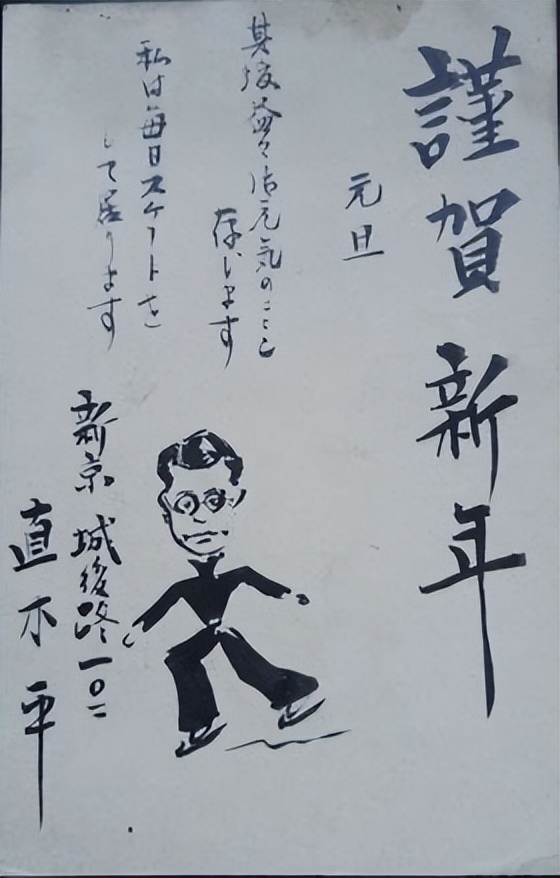 謹賀新年
元旦
其後益々御元気のことゝ
存じます
私は毎日スケートを
して居ります
新京城後路一〇二
直木平